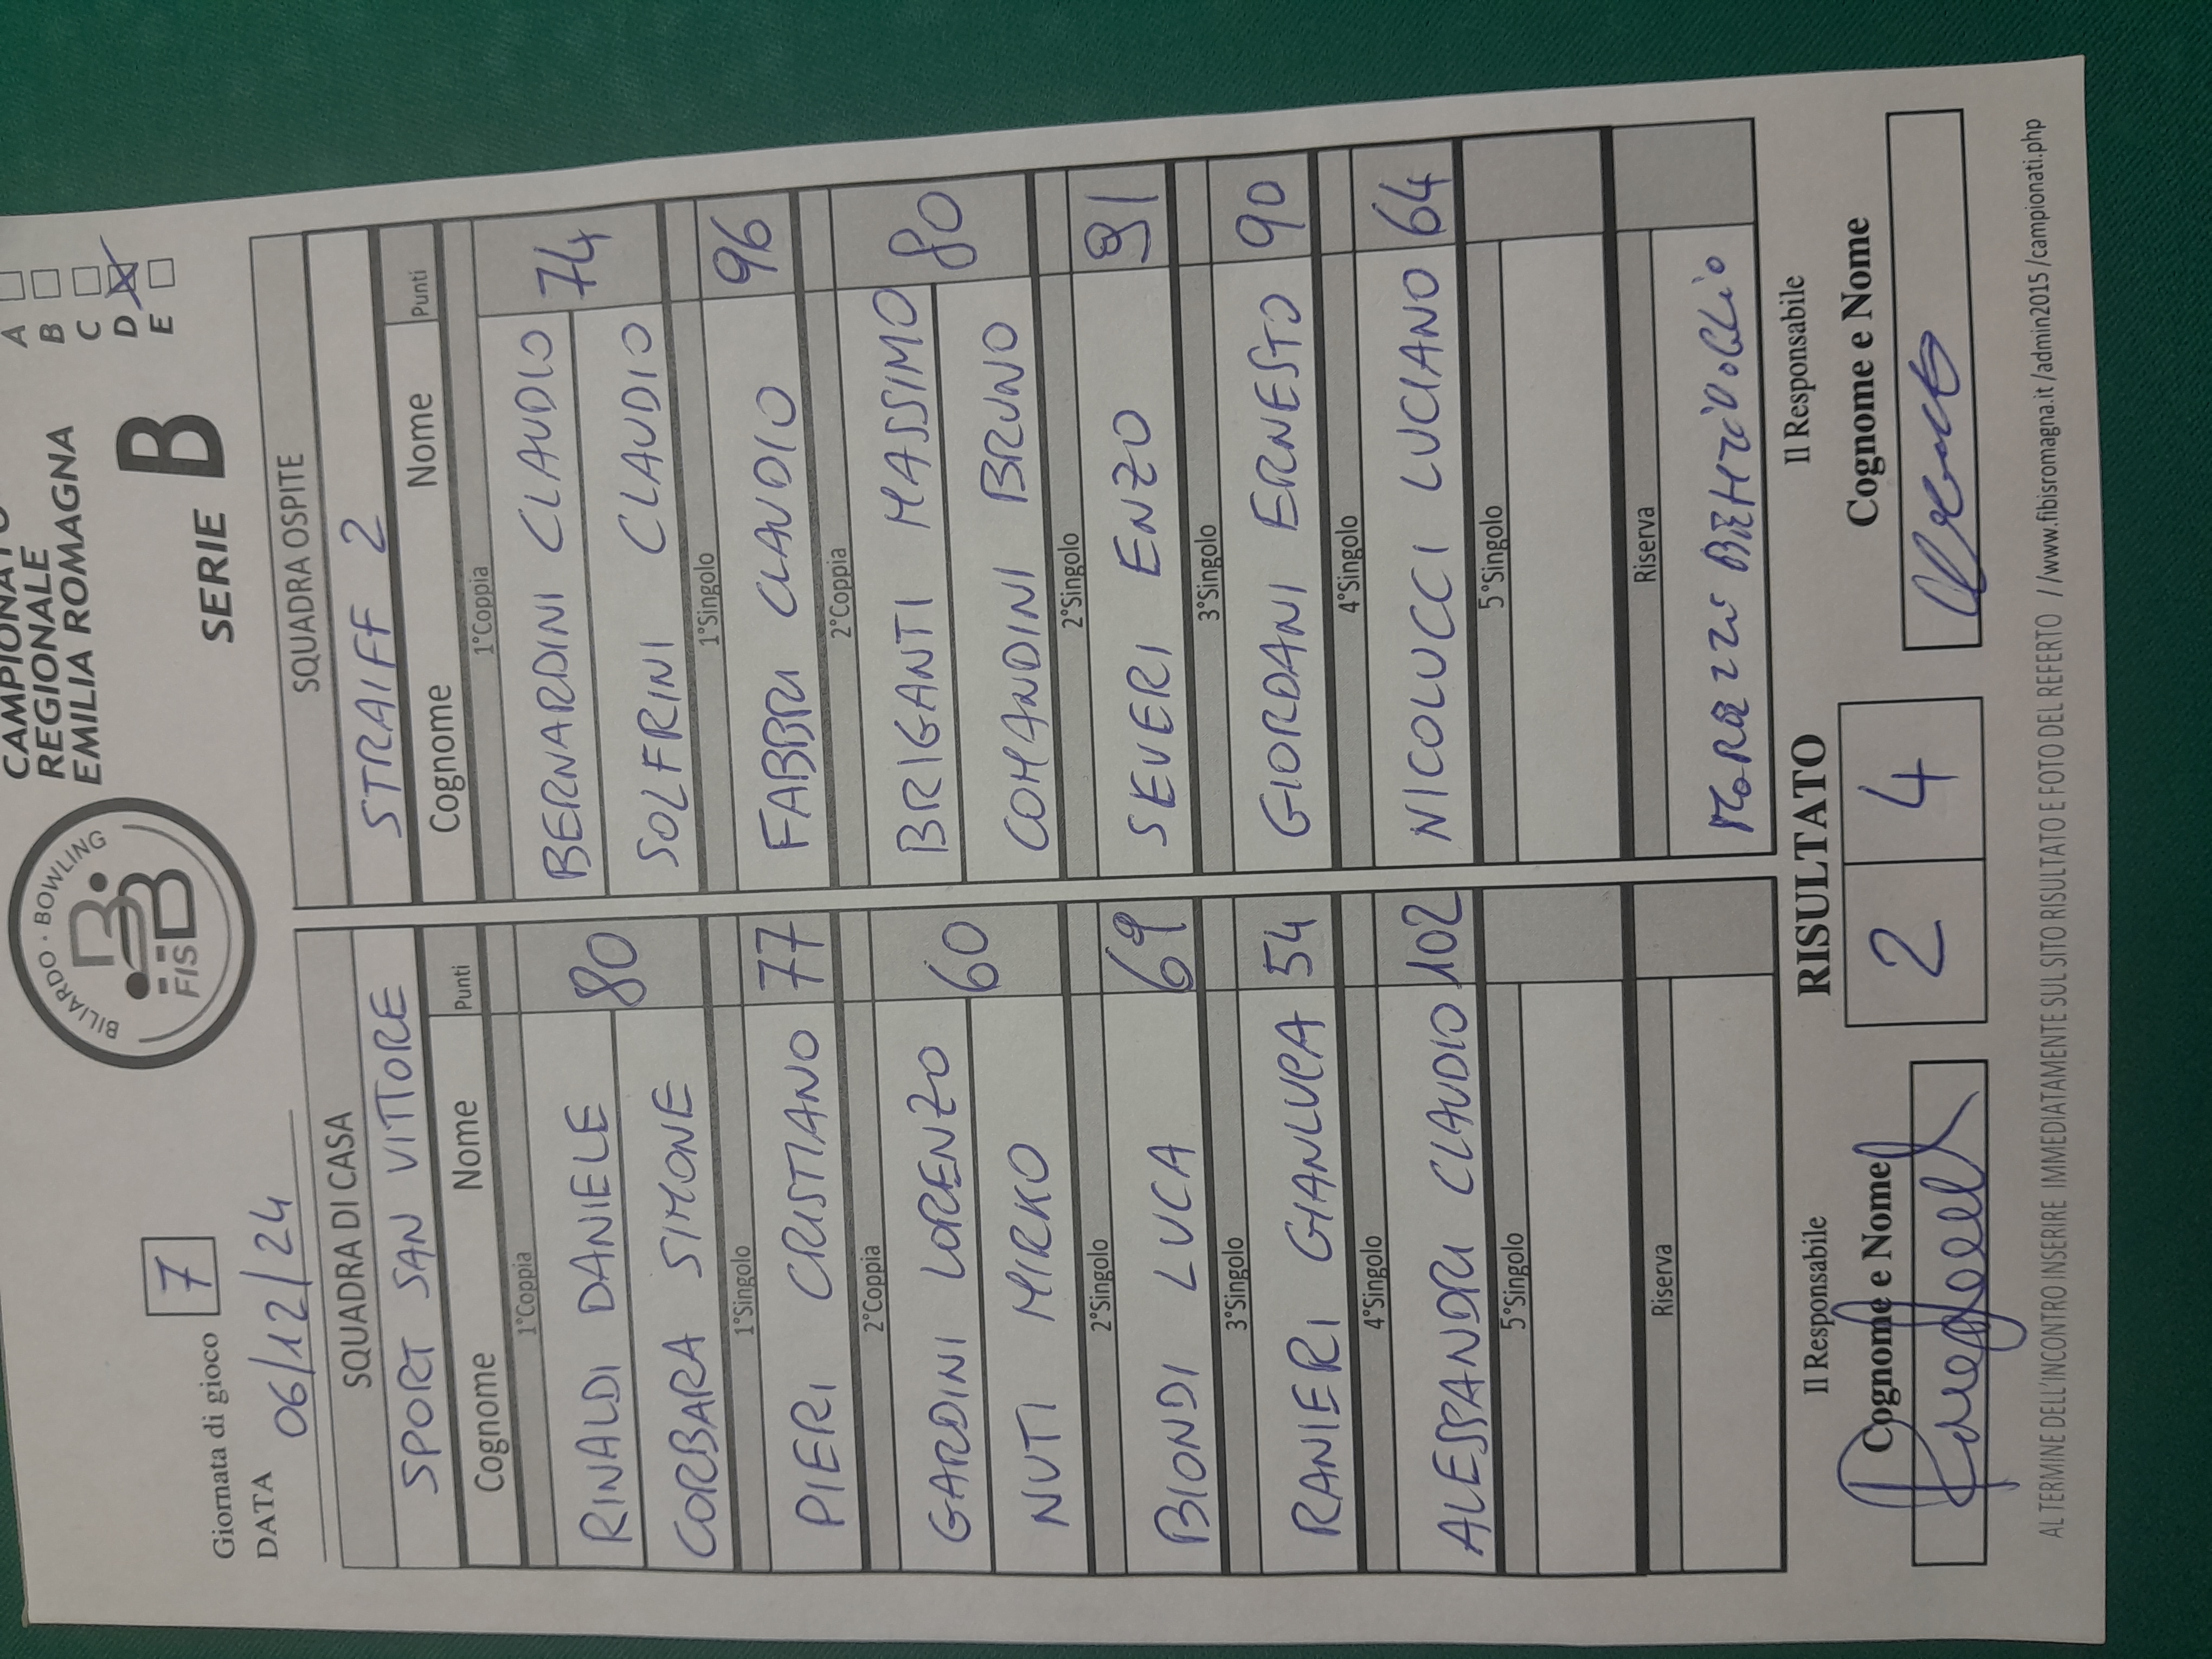 BILIARDO · BOWLING
FISBB
CAMPIONATO
REGIONALE
EMILIA ROMAGNA
SERIE B
A
B
C
D
E
Giornata di gioco 7
DATA 06/12/24
SQUADRA DI CASA
SPORT SAN VITTORE
Cognome Nome Punti
1°Coppia
RINALDI DANIELE 80
CORBARA SIMONE
1°Singolo
PIERI CRISTIANO 77
2°Coppia
GARDINI LORENZO 60
NUTI MIRKO
2°Singolo
BIONDI LUCA 69
3°Singolo
RANIERI GIANLUCA 54
4°Singolo
ALESSANDRI CLAUDIO 102
5°Singolo
Riserva
SQUADRA OSPITE
STRAIFF 2
Cognome Nome Punti
1°Coppia
BERNARDINI CLAUDIO 74
SOLFRINI CLAUDIO
1°Singolo
FABBRI CLAUDIO 96
2°Coppia
BRIGANTI MASSIMO 80
COMANDINI BRUNO
2°Singolo
SEVERI ENZO 91
3°Singolo
GIORDANI ERNESTO 90
4°Singolo
NICOLUCCI LUCIANO 64
5°Singolo
Riserva
Il Responsabile
Cognome e Nome
RISULTATO
2 4
Il Responsabile
Cognome e Nome
AL TERMINE DELL'INCONTRO INSERIRE IMMEDIATAMENTE SUL SITO RISULTATO E FOTO DEL REFERTO //www.fibisromagna.it/admin2015/campionati.php